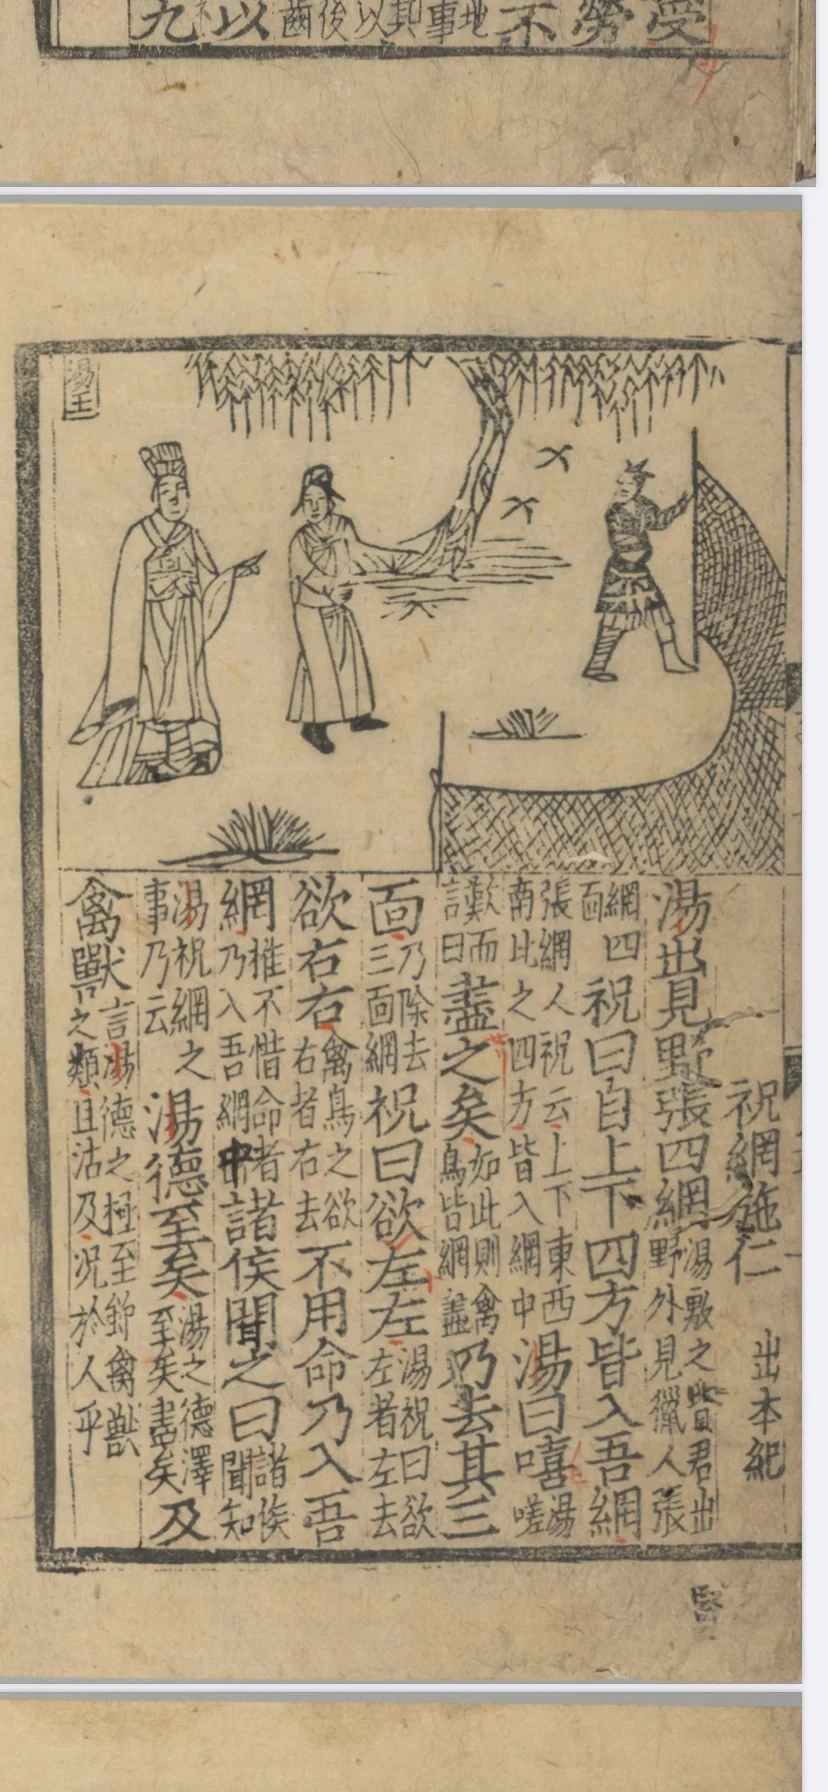 受
勞
不
地
事
其
以
後
齒
以
九
湯王
祝網施仁 出本紀
湯出見野張四網湯敷之賢君出野外見獵人張
網四面祝曰自上下四方皆入吾網
張網人祝云上下東西南北之四方皆入網中湯曰嘻湯嗟
歎而言曰盡之矣如此則禽鳥皆網盡乃去其三
面乃除去三面網祝曰欲左左湯祝曰欲左者左去
欲右右禽鳥之欲右者右去不用命乃入吾
網惟不惜命者乃入吾網中諸侯聞之曰諸侯聞知
湯祝網之事乃云湯德至矣湯之德澤至矣盡矣及
禽獸言湯德之極至雖禽獸之類且沾及况於人乎
賢